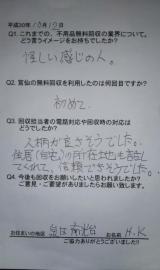 平成30年10月19日
Q1. これまでの、不用品無料回収の業界について、
どう言うイメージをお持ちでしたか?
怪しい感じの人。
Q2. 當仙の無料回収を利用したのは何回目ですか?
初めて
Q3. 回収担当者の電話対応や回収時の対応は
どうでしたか?
人柄が良さそうでした。
住居(自宅)の所在地も話し
てくれて、信頼できそうでした。
Q4. 今後も回収をお願いしたいと思われましたか?
ご意見・ご要望がありましたらお願い致します。
お住まいの地域 泉区 南光台 お名前 H.K
ご協力ありがとうございました!!